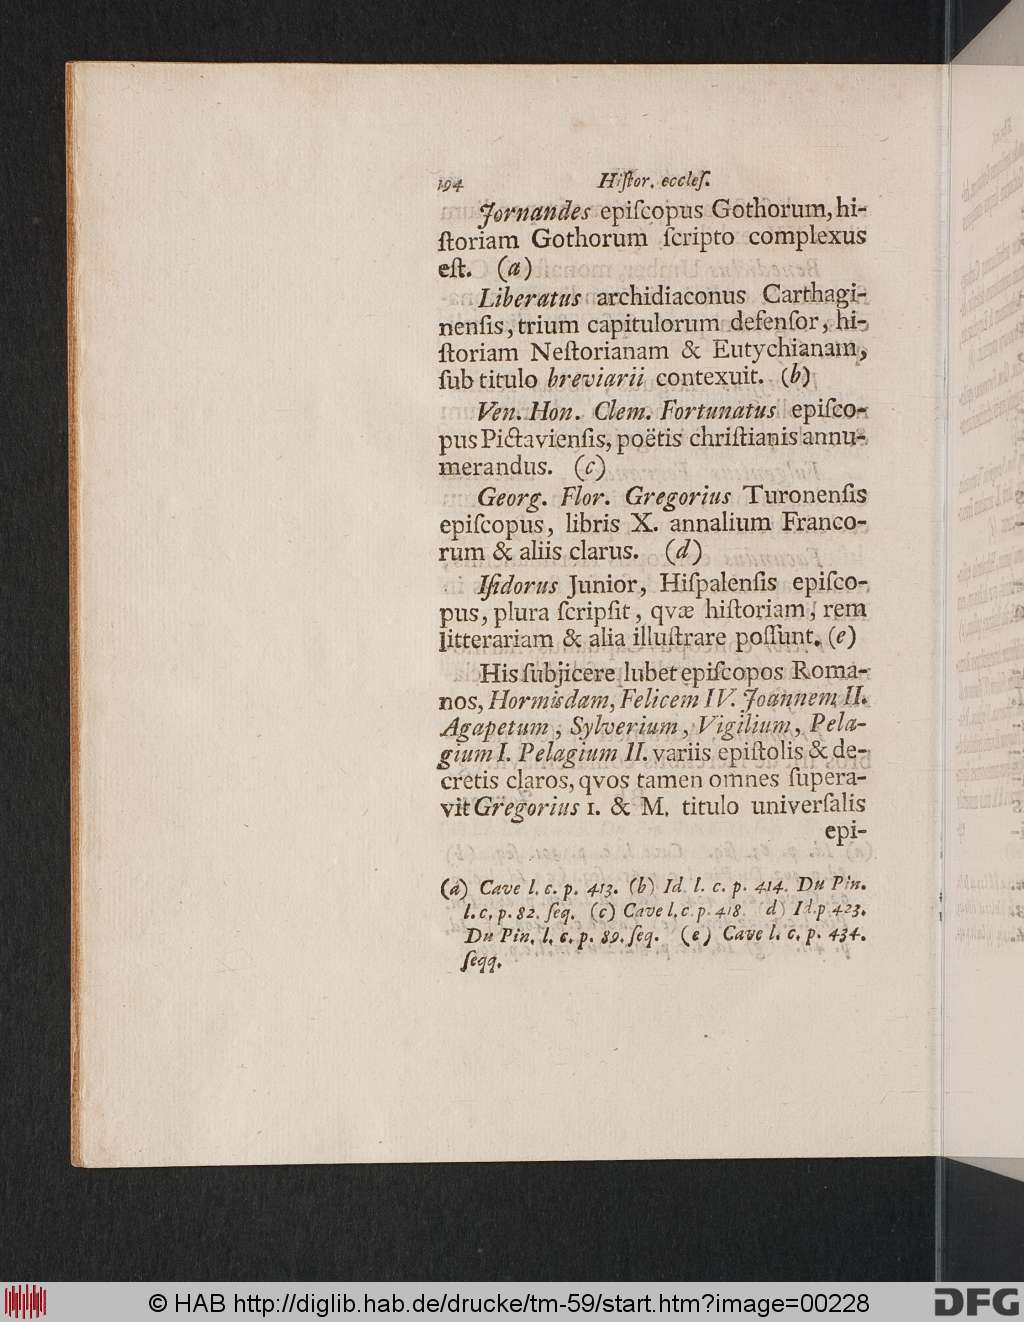 194 Hiſtor. eccleſ.
Jornandes epiſcopus Gothorum, hi-
ſtoriam Gothorum ſcripto complexus
eſt. (a)
Liberatus archidiaconus Carthagi-
nenſis, trium capitulorum defenſor, hi-
ſtoriam Neſtorianam & Eutychianam,
ſub titulo breviarii contexuit. (b)
Ven. Hon. Clem. Fortunatus epiſco-
pus Pictavienſis, poëtis chriſtianis annu-
merandus. (c)
Georg. Flor. Gregorius Turonenſis
epiſcopus, libris X. annalium Franco-
rum & aliis clarus. (d)
Iſidorus Junior, Hiſpalenſis epiſco-
pus, plura ſcripſit, qvæ hiſtoriam, rem
litterariam & alia illuſtrare poſſunt. (e)
His ſubjicere lubet epiſcopos Roma-
nos, Hormisdam, Felicem IV. Joannem II.
Agapetum, Sylverium, Vigilium, Pela-
gium I. Pelagium II. variis epiſtolis & de-
cretis claros, qvos tamen omnes ſupera-
vit Gregorius I. & M. titulo univerſalis
epi-
(a) Cave l. c. p. 413. (b) Id. l. c. p. 414. Du Pin.
l. c. p. 82. ſeq. (c) Cave l. c. p. 418. (d) Id. p. 423.
Du Pin. l. c. p. 89. ſeq. (e) Cave l. c. p. 434.
ſeqq.
© HAB http://diglib.hab.de/drucke/tm-59/start.htm?image=00228
DFG